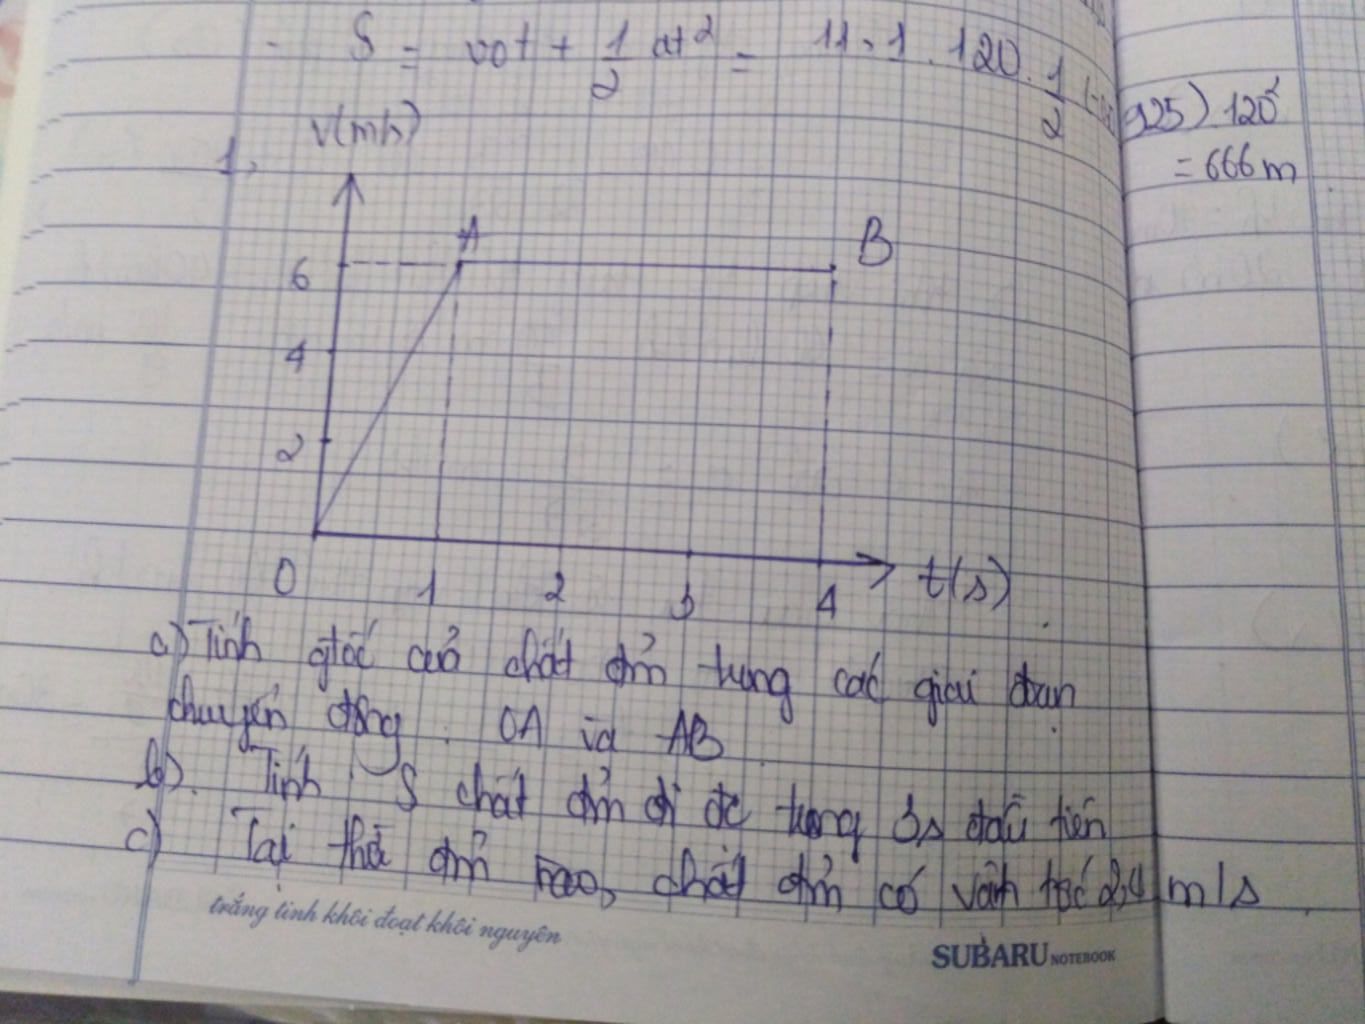 - S = v0t + 1/2 at² = 11,1 . 120 . 1/2 (-0,0925) 120²
= 666m
1,
v(m/s)
A
B
6
4
2
0
1
2
3
4
t(s)
a) Tính gtốc của chất đ'm trong các giai đoạn
chuyển động : OA và AB
b). Tính S chất đ'm đi đc trong 3s đầu tiên
c) Tại thời đ'm nào, chất đ'm có vận tốc 2,4 m/s
trắng tinh khôi đoạt khôi nguyên
SUBARU NOTEBOOK